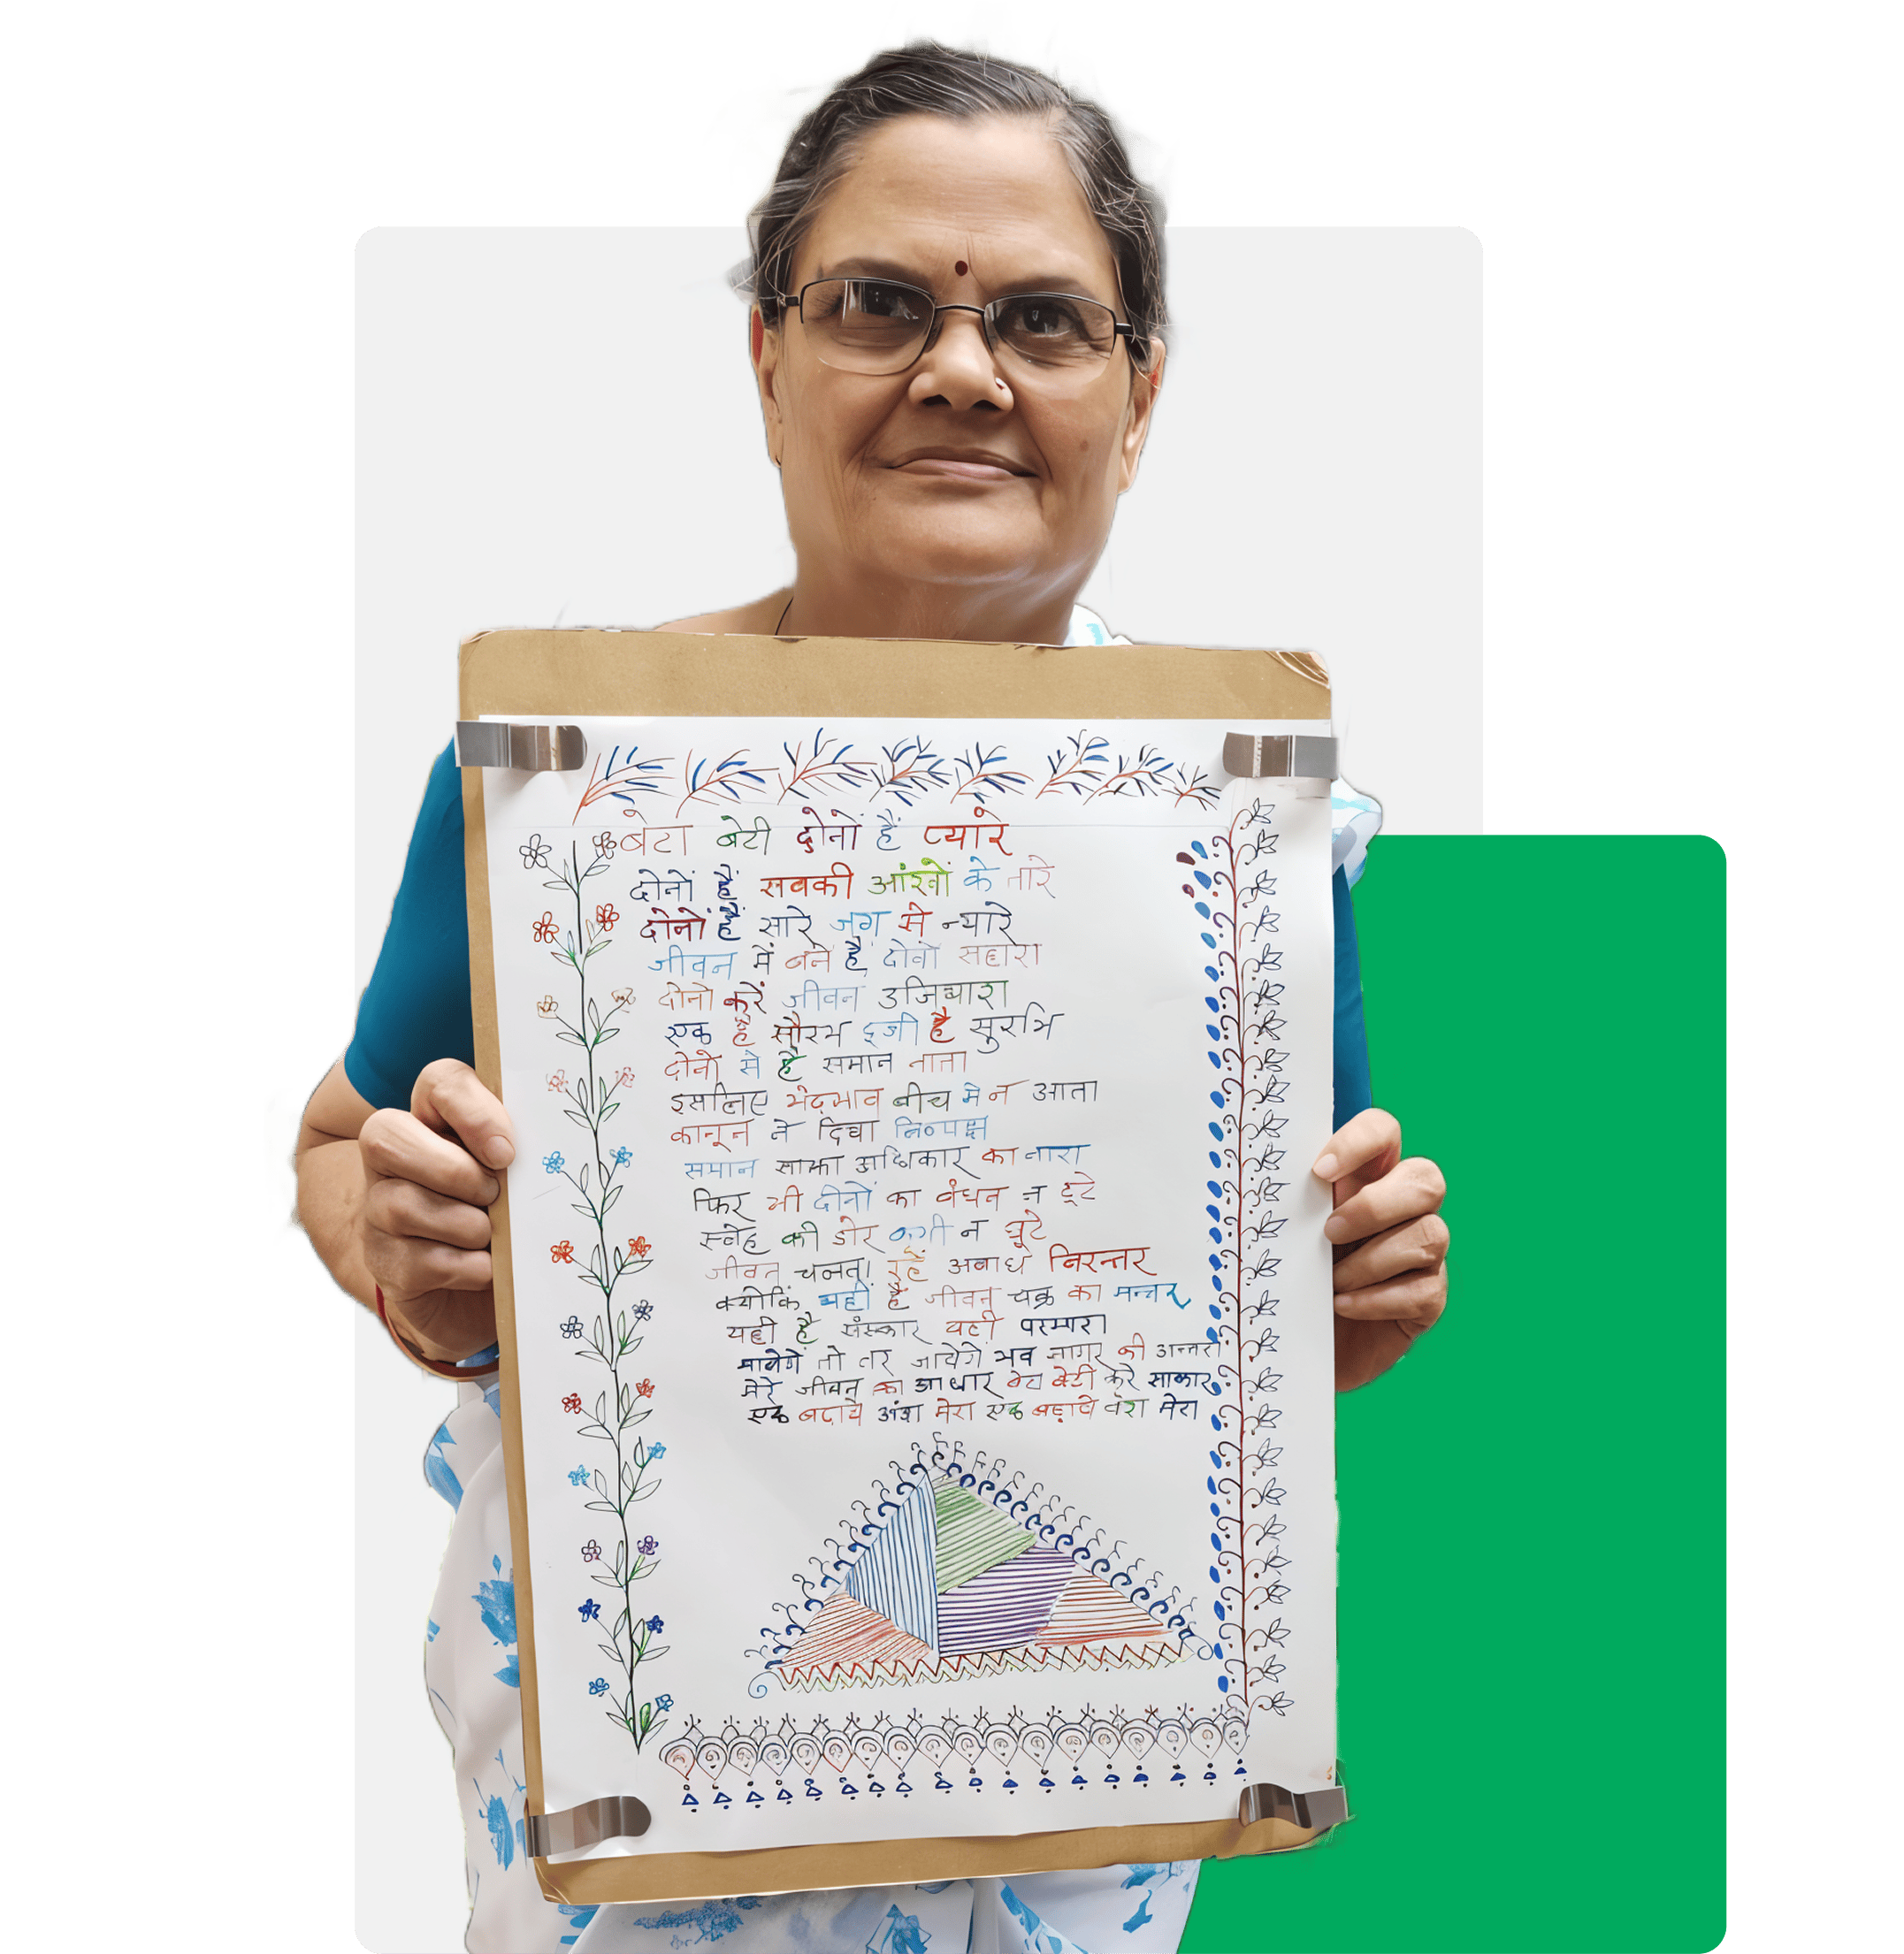 बेटा बेटी दोनों हैं प्यारे
दोनों हैं सबकी आंखों के तारे
दोनों हैं सारे जग से न्यारे
जीवन में बने है दोनों सहारा
दोनो करें जीवन उजियारा
एक है सौरभ दूजी है सुरभि
दोनो से है समान नाता
इसलिए भेदभाव बीच मे न आता
कानून ने दिया निष्पक्ष
समान साझा अधिकार का नारा
फिर भी दोनों का बंधन न टूटे
स्नेह की डोर कभी न छूटे
जीवन चलता रहे अबाध निरन्तर
क्योंकि यही है जीवन चक्र का मन्तर
यही है संस्कार यही परम्परा
तो तर जायेगें भव सागर की
मेरे जीवन का आधार बेटा बेटी करे साकार
एक बढ़ाये अंश मेरा एक बढ़ाये वंश मेरा